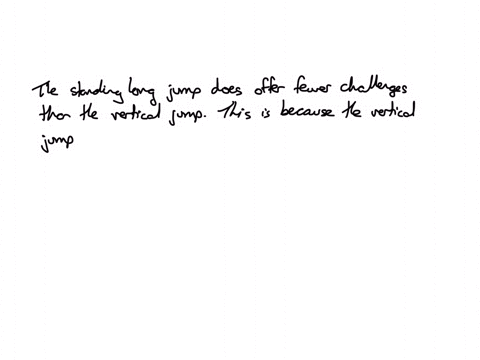 The standing long jump does offer fewer challenges
than the vertical jump. This is because the vertical
jump